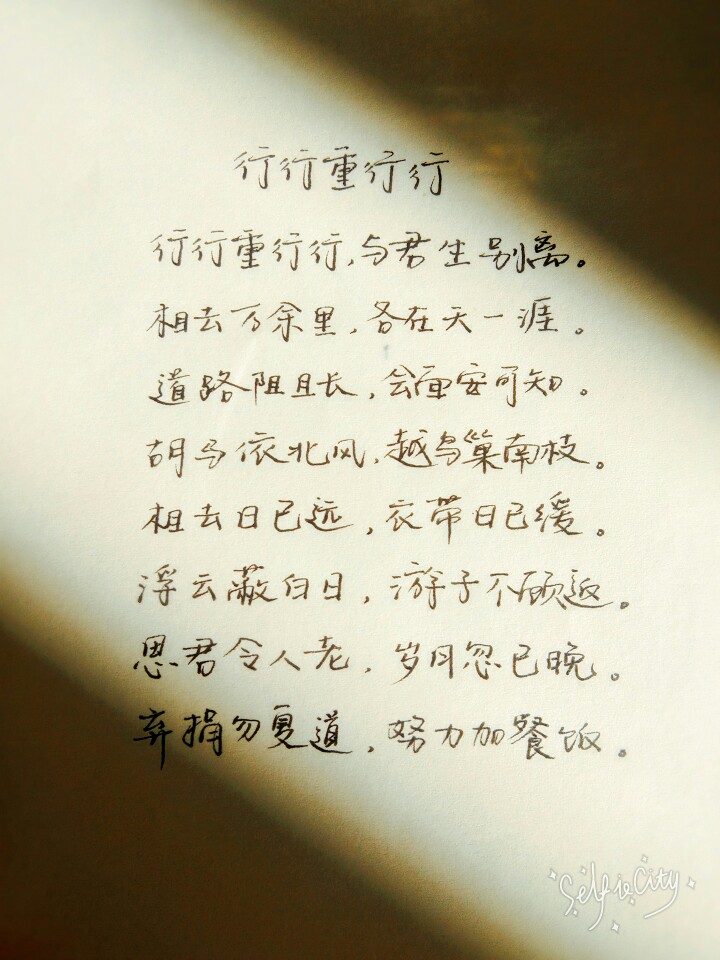 行行重行行
行行重行行,与君生别离。
相去万余里,各在天一涯。
道路阻且长,会面安可知。
胡马依北风,越鸟巢南枝。
相去日已远,衣带日已缓。
浮云蔽白日,游子不顾返。
思君令人老,岁月忽已晚。
弃捐勿复道,努力加餐饭。
SelfieCity